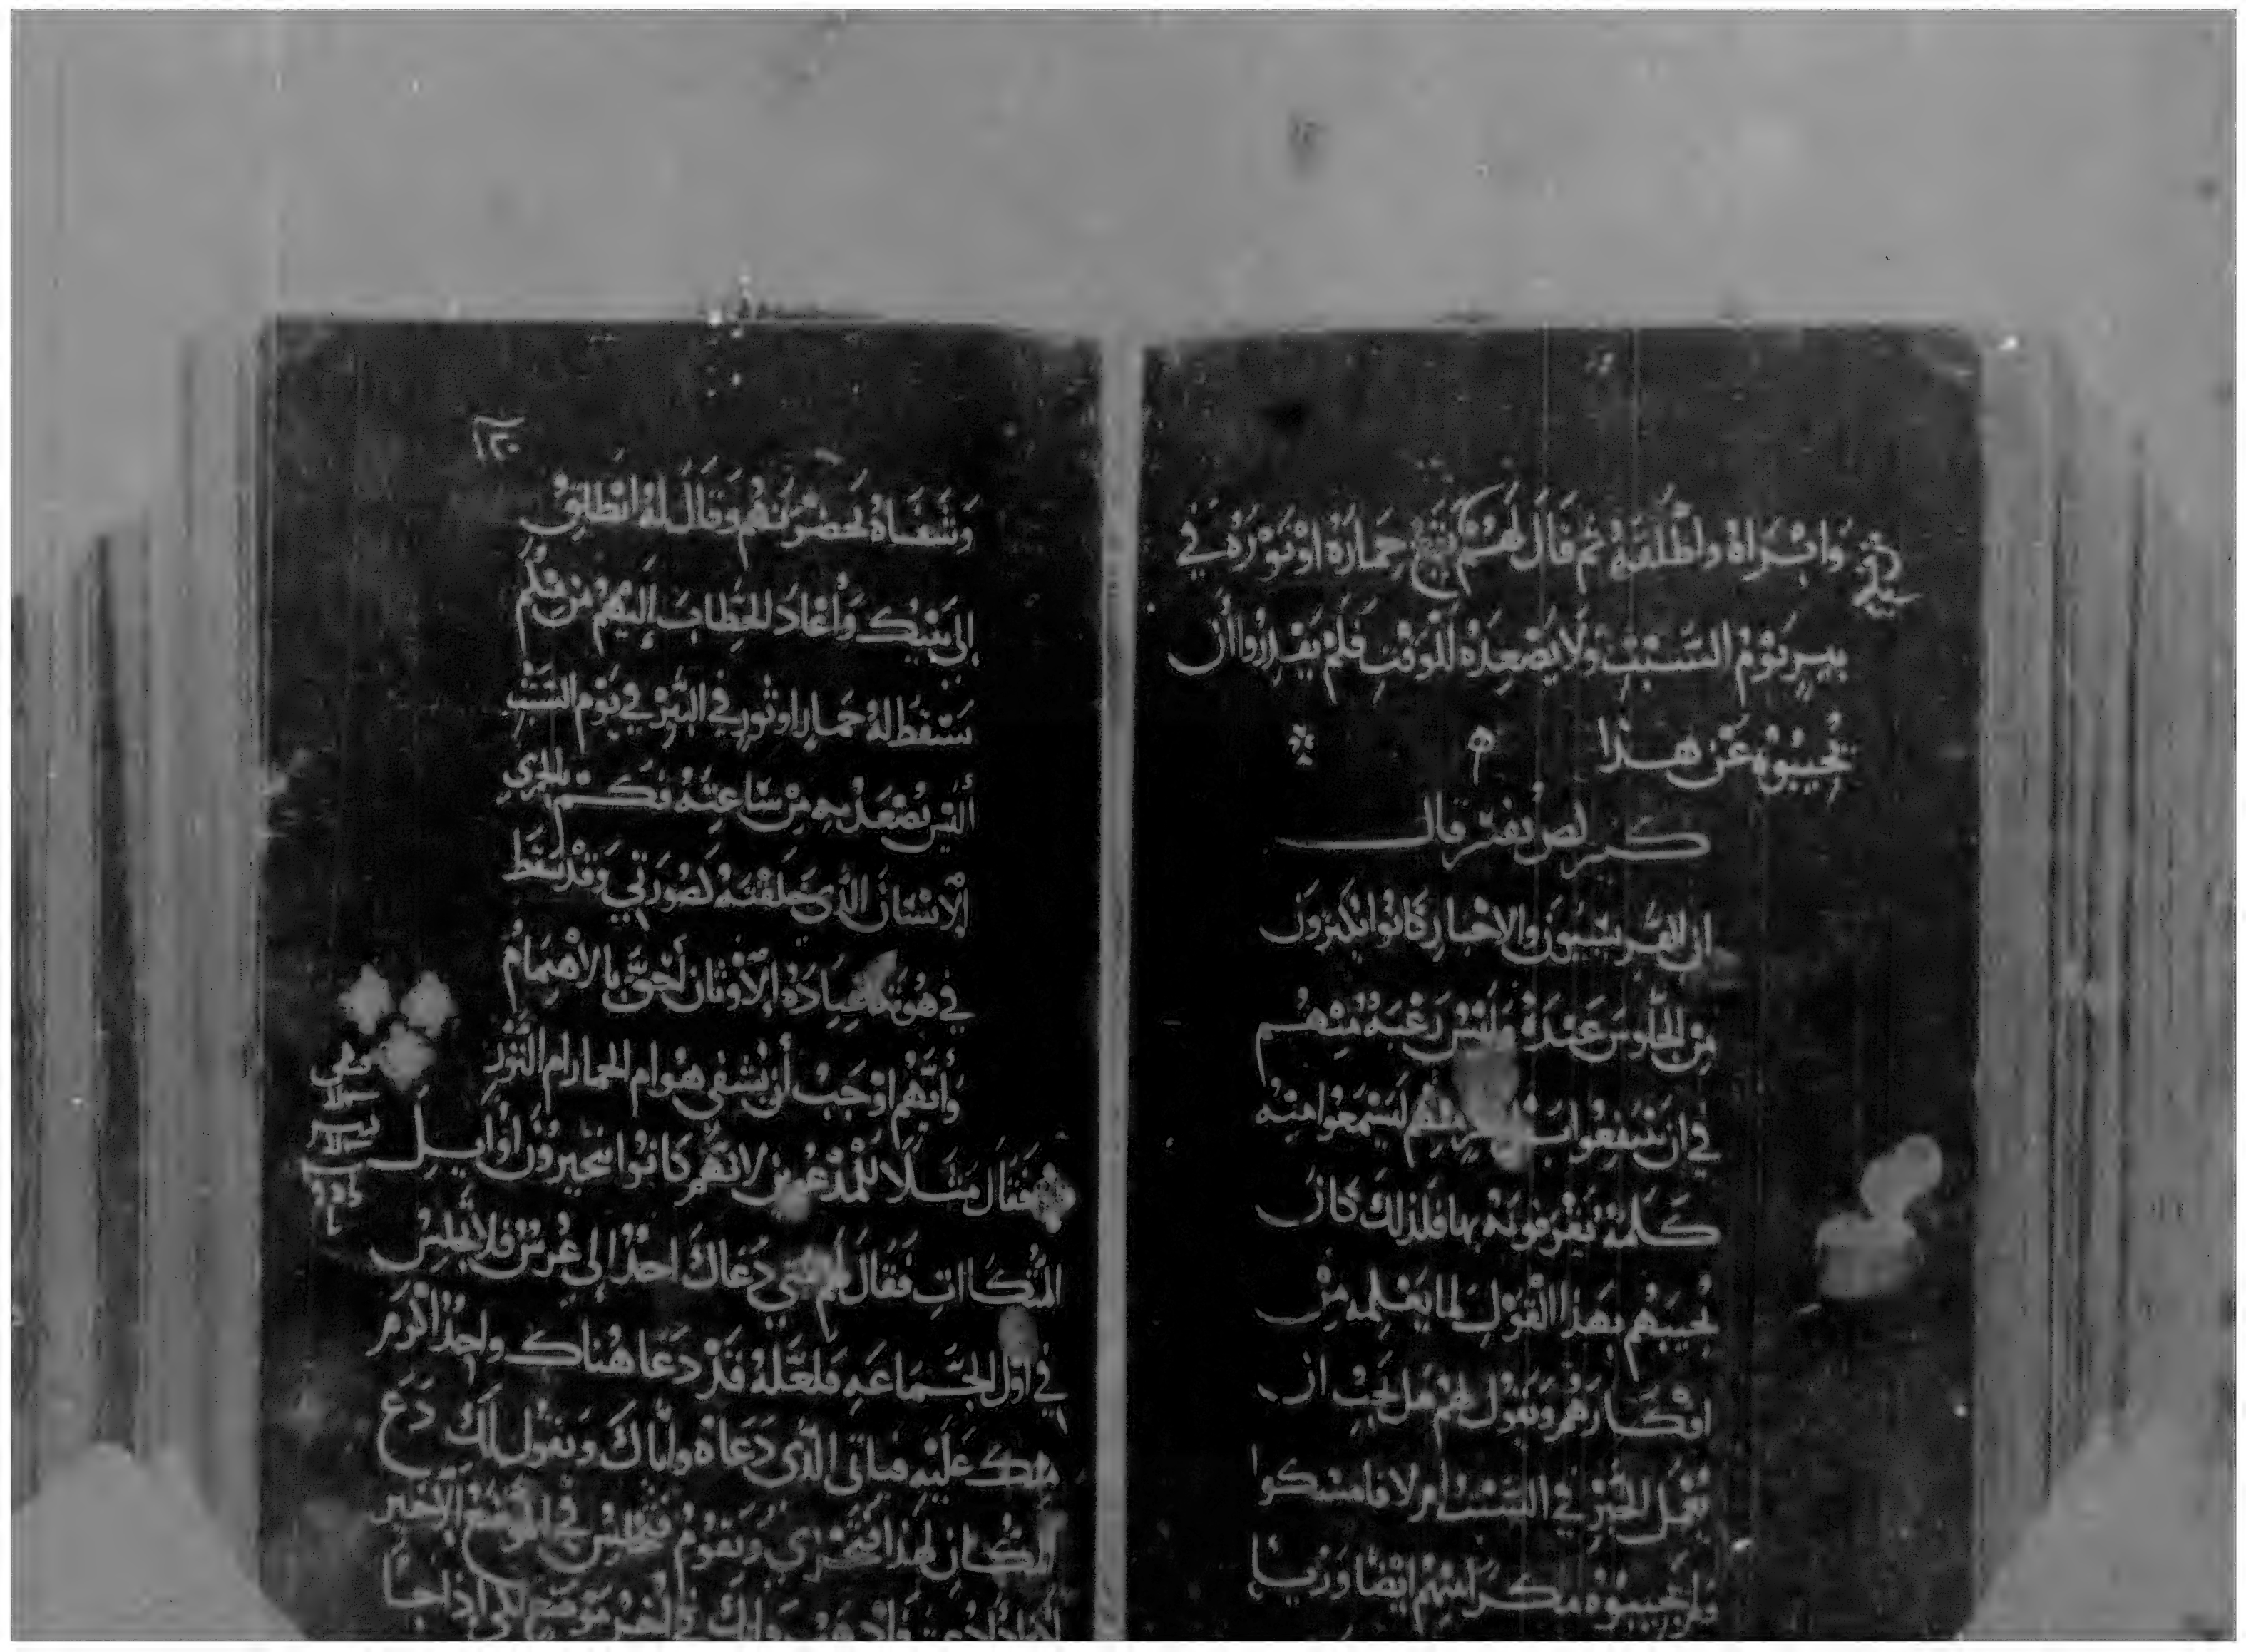 وَابْرَاهُ واطْلقَهُ ثم قَالَ لهُم يَقع حِمَارَهُ اوْ ثَوْرَهُ في
بيرٍ يَوْمُ السَّبْتِ ولَا يُصْعِدَهُ للوَقْتِ فَلَمْ يَقدِرُوا أن
يُجيبُوهُ عَنْ هذا
كيرلص يفسر قال
ان الفريسيون والاحبار كَانُوا يُكثرون
مِن الجُلوس عَنْدَهُ وليْسَ رَغبَةً مِنهُم
في ان يَنتفعُوا لِيَسْمَعُوا مِنهُ
كَلمَة يَقرفونَهُ بها فلذلك كان
يُجيبَهُم بهذا القَوْلِ لما يَعْلمه مِنْ
افكَارَهُم وَيَقول لهم هَل يَجِبْ ان
نفعَل الخيْر في السَّبت ام لا فامسَكوا
ولم يُجيبوُه مكرًا مِنهُم ايضًا وَزيا
١٢٠
وَشَفَاهُ بحَضْرَتهُم وَقَالَ لهُ انْطلِقْ
إلى بَيْتِكَ وَأعَادَ للخِطابَ إليْهُم مَن مِنكُم
يَسْقطُ لهُ حِمار اوثور في البير في يَوْم السَّبت
أليْسَ يُصْعِدُهِ مِنْ سَاعتِهُ فكم بالحري
الانسَان الذي خَلقتهُ لصُورَتي وَقدْ سَقط
في هُوَّة عِبَادَة الاوثان أحَقّ بالاهتِمَامُ
وَأيّهُم اوْجَبْ أن يُشفى هُوَ ام الحمار ام الثَّوْر
فقال مَثَلًا للمَدْعُوين لانَّهُم كانُوا يتخيرُون اوَايل
المُتّكَااتِ فَقَالَ لهم مَتي دَعَاكَ احَدٌ إلى عُرسٍ فلا تجلِسْ
في اوّل الجَّمَاعَهِ فلعَلهُ قَدْ دَعَا هُناك واحِدٌ اكرَم
مِنك عَليْهِ فيَاتي الذي دَعَاهُ وايَّاكَ وَيَقول لَكَ دَع
المكان لهَذا فتخزي وَتقوُمُ فتجلِسْ في الموْضِعْ الاخير